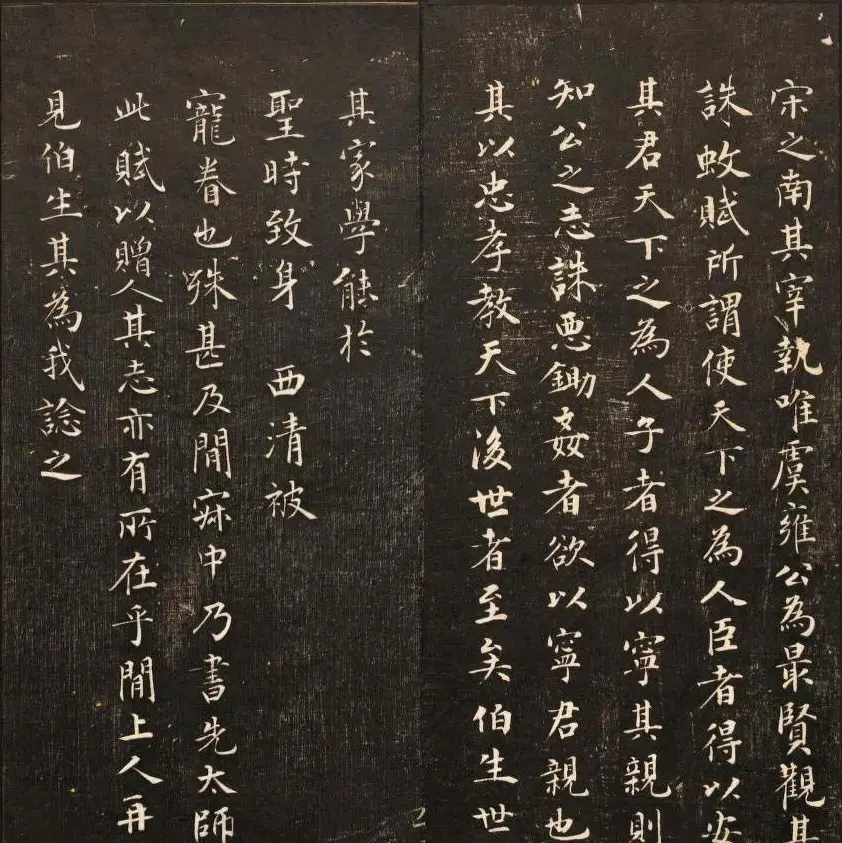 宋之南其宰執唯虞雍公為最賢觀其
誅蚊賦所謂使天下之為人臣者得以安
其君天下之為人子者得以寧其親則
知公之志誅惡鋤姦者欲以寧君親也
其以忠孝教天下後世者至矣伯生世
其家學能於
聖時致身 西清被
寵眷也殊甚及閒寂中乃書先太師
此賦以贈人其志亦有所在乎閒上人再
見伯生其為我諗之